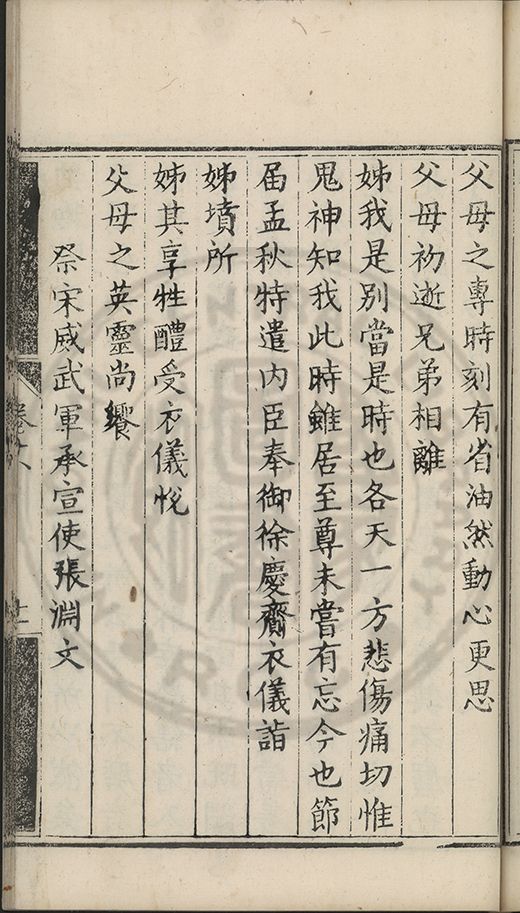 父母之專時刻有省油然動心更思
父母初逝兄弟相離
姊我是別當是時也各天一方悲傷痛切惟
鬼神知我此時雖居至尊未嘗有忘今也節
届孟秋特遣内臣奉御徐慶齎衣儀詣
姊墳所
姊其享牲醴受衣儀悅
父母之英靈尚饗
祭宋威武軍承宣使張淵文